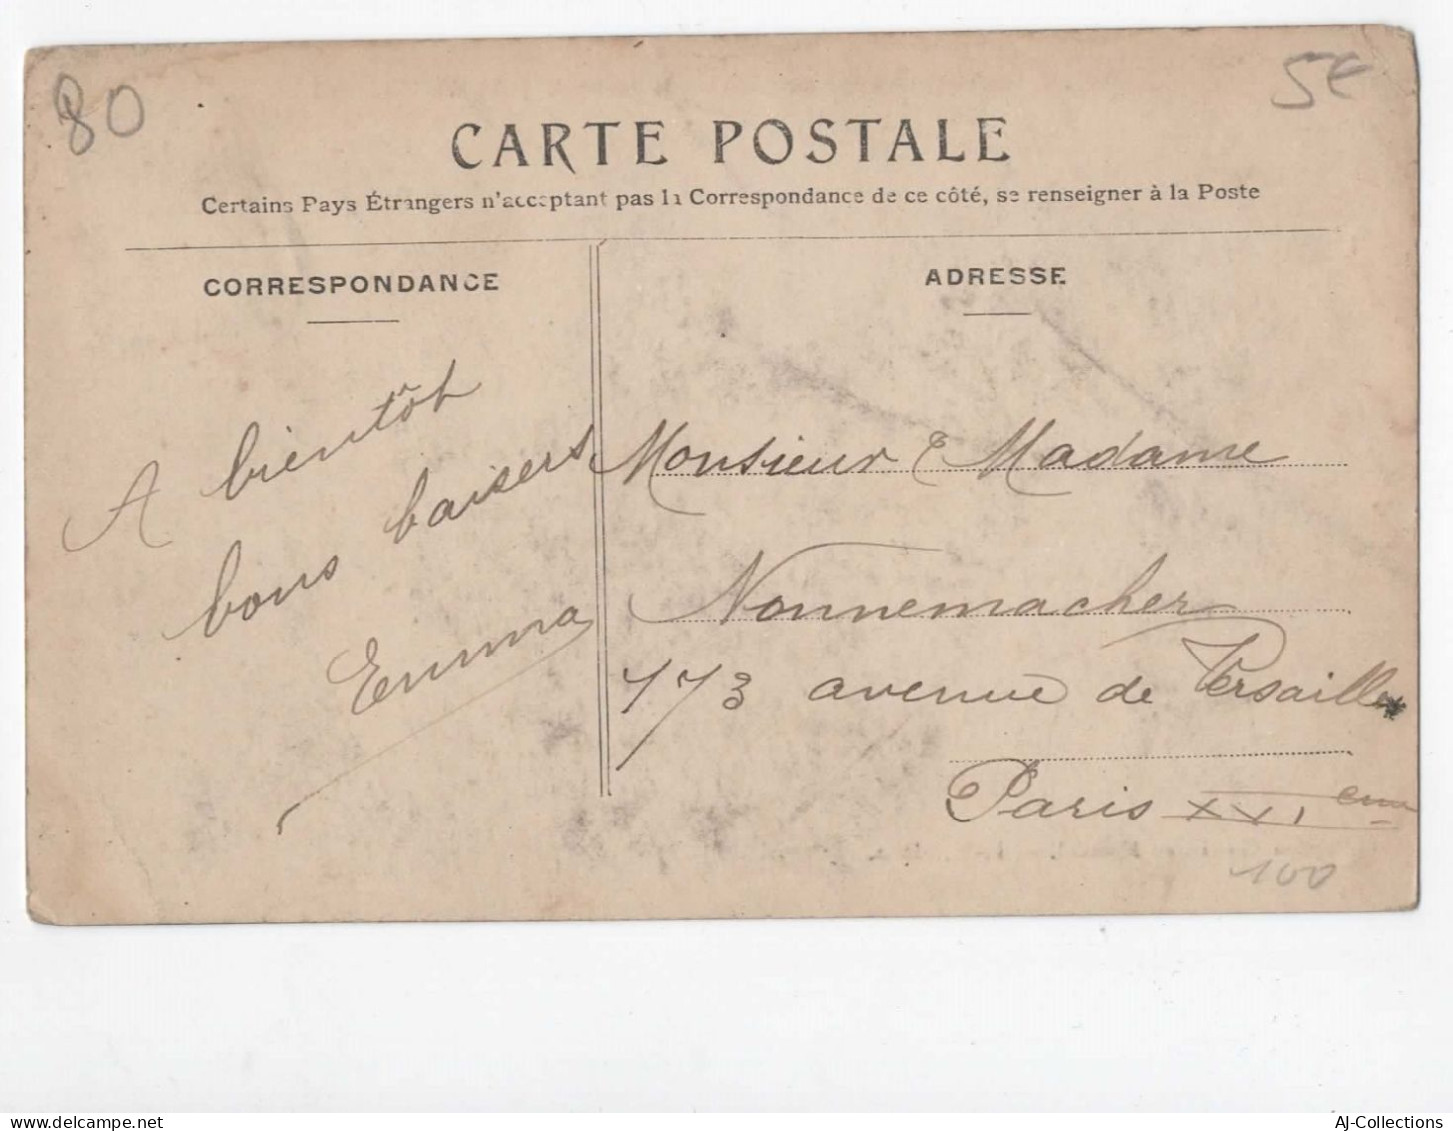 80
5€
CARTE POSTALE
Certains Pays Étrangers n'acceptant pas la Correspondance de ce côté, se renseigner à la Poste
CORRESPONDANCE
A bientôt
bons baisers
Emma
ADRESSE
Monsieur & Madame
Nonnemacher
173 avenue de Versailles
Paris XVIeme
100
AJ-Collections